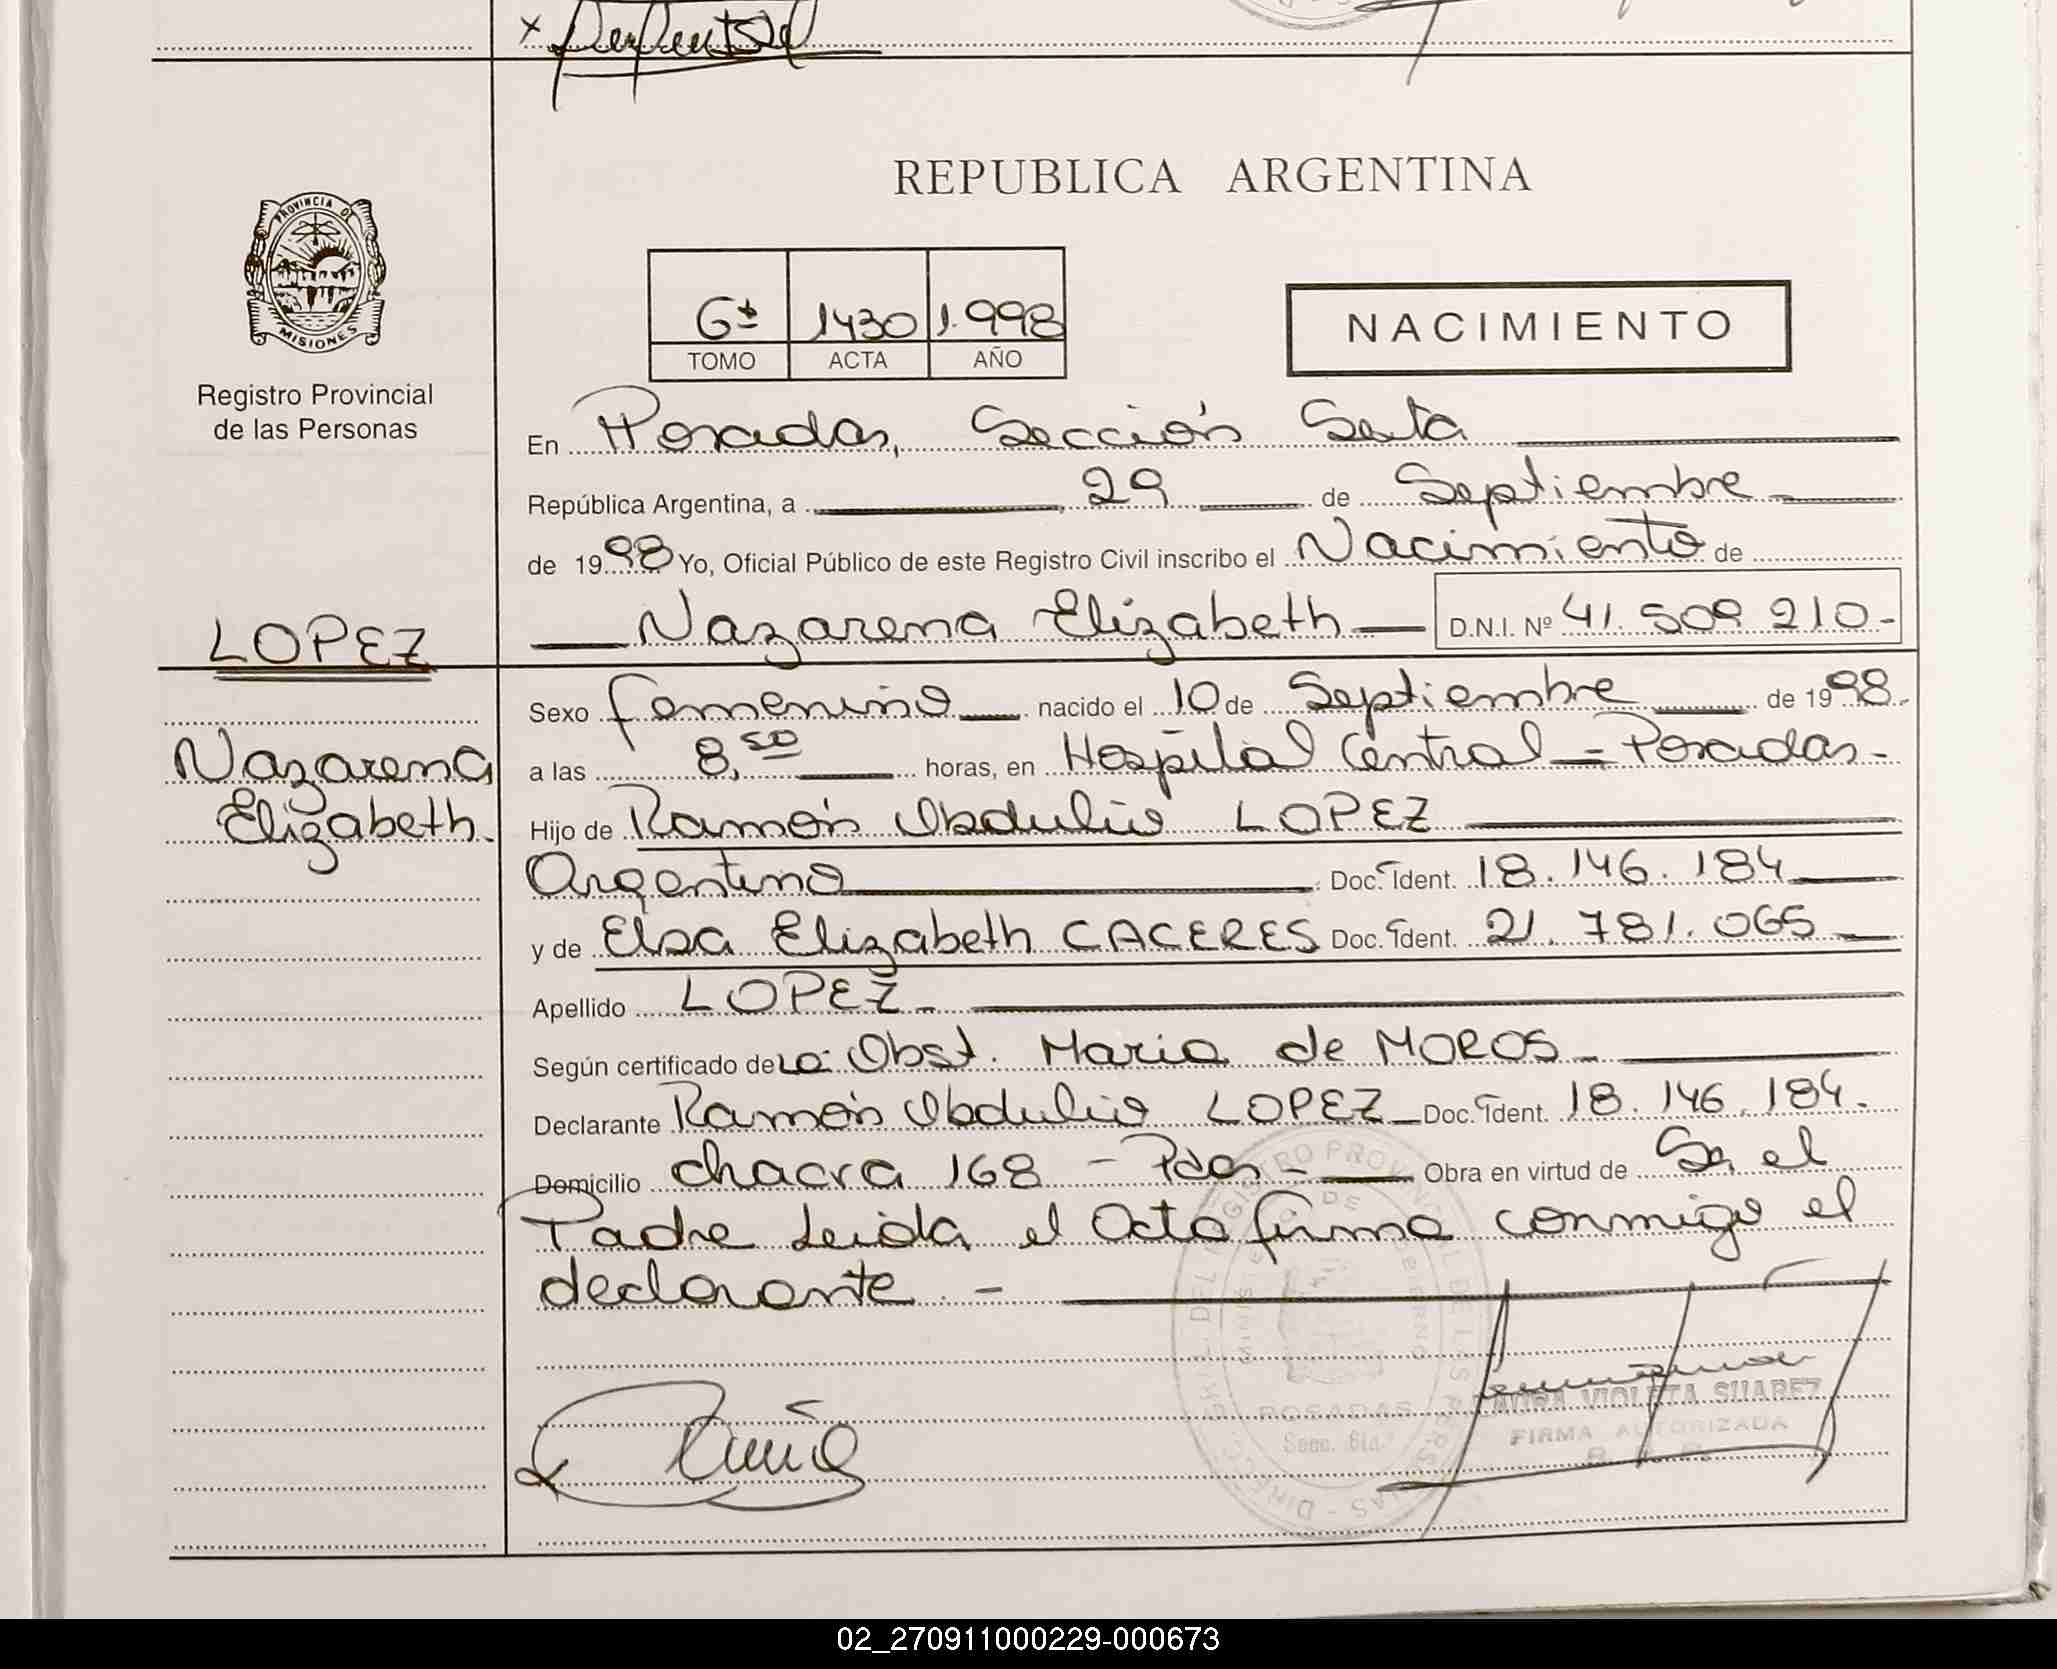 REPUBLICA ARGENTINA
PROVINCIA DE
MISIONES
Registro Provincial
de las Personas
6º 1430 1.998
TOMO ACTA AÑO
NACIMIENTO
En Posadas, Sección Sexta
República Argentina, a 29 de Septiembre
de 1998 Yo, Oficial Público de este Registro Civil inscribo el Nacimiento de
Nazarena Elizabeth D.N.I. Nº 41.509.210-
LOPEZ
Nazarena
Elizabeth.
Sexo femenino nacido el 10 de Septiembre de 1998.
a las 8,50 horas, en Hospital Central = Posadas-
Hijo de Ramón Obdulio LOPEZ
Argentino Doc. Ident. 18.146.184
y de Elsa Elizabeth CACERES Doc. Ident. 21.781.065
Apellido LOPEZ
Según certificado de La Obst. Maria de MOROS
Declarante Ramón Obdulio LOPEZ Doc. Ident. 18.146.184.
Domicilio chacra 168 - Pdas - Obra en virtud de Ser el
Padre Leida el Acta firma conmigo el
declarante. -
POSADAS
Secc. 6ta.
LAURA VIOLETA SUAREZ
FIRMA AUTORIZADA
02_270911000229-000673